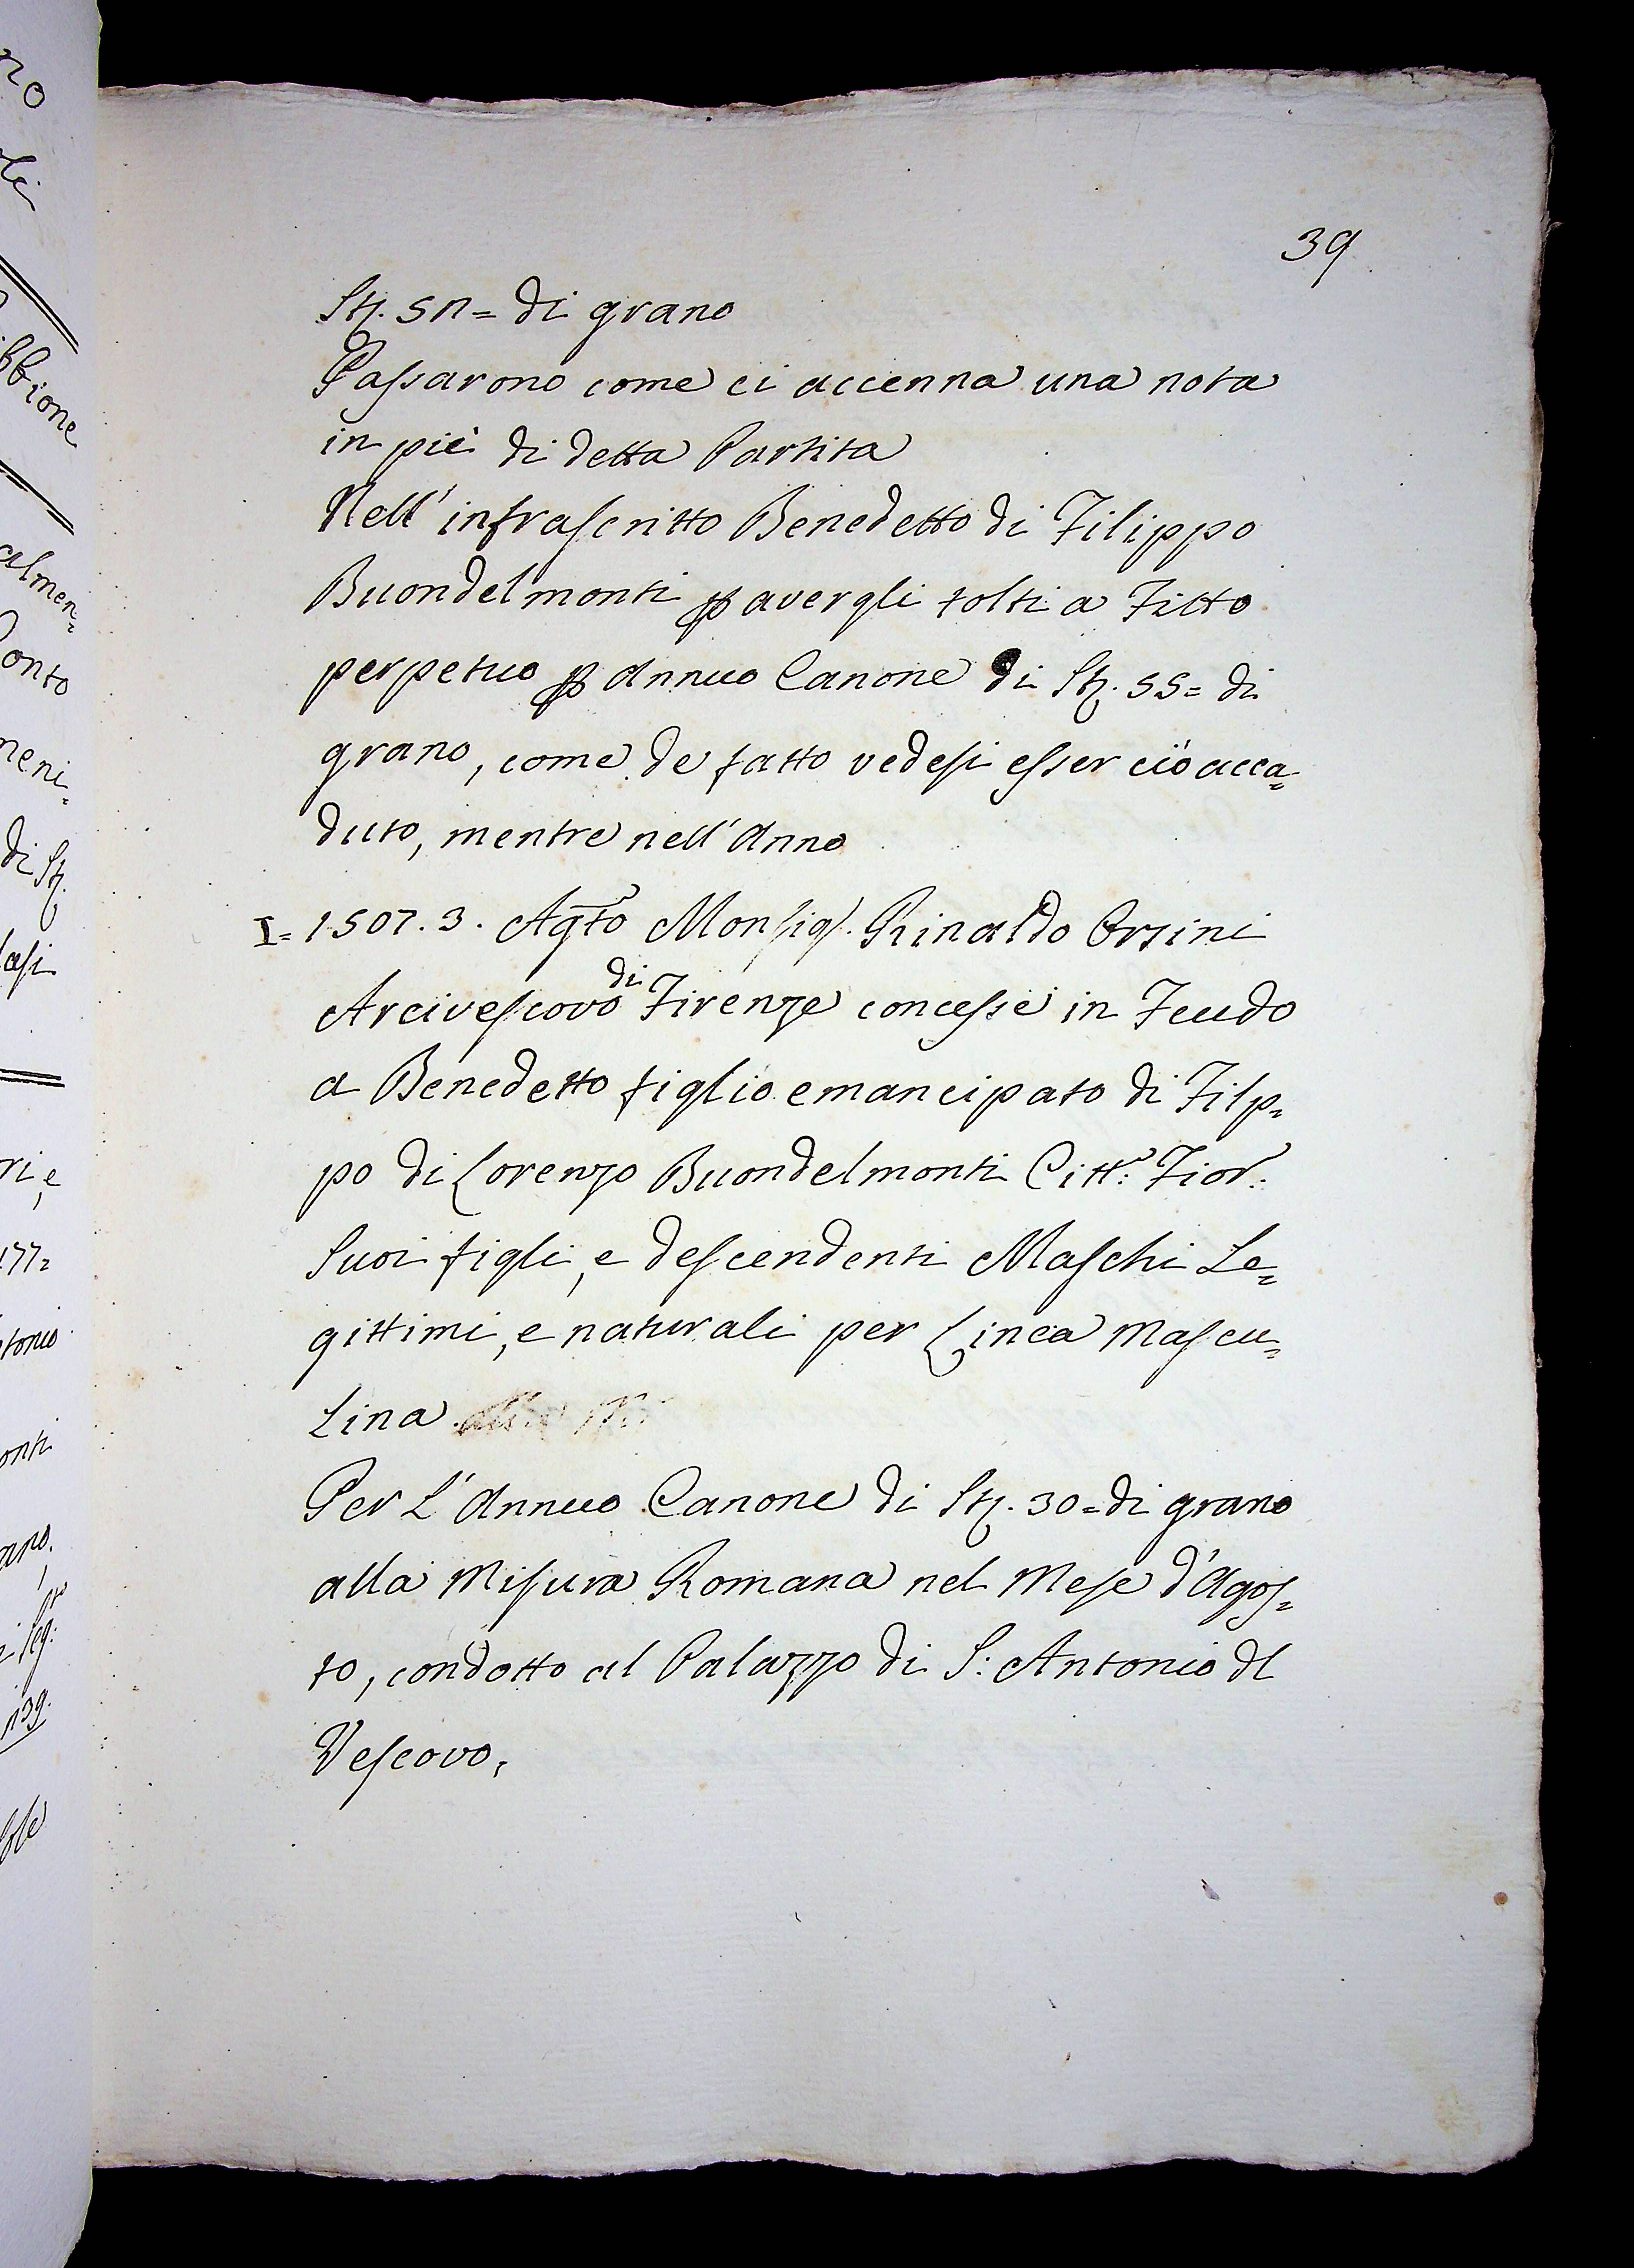 39
Stj. 5n= di grano
Passarono come ci accenna una nota
in piè di detta Partita
Nell'infrascritto Benedetto di Filippo
Buondelmonti ꝑ avergli tolti a Fitto
perpetuo ꝑ Annuo Canone di Stj. 55= di
grano, come de fatto vedesi esser ciò acca=
duto, mentre nell'Anno
I= 1507. 3. Agto Monsig. Rinaldo Orsini
Arcivescovo di Firenze concesse in Feudo
a Benedetto figlio emancipato di Filp=
po di Lorenzo Buondelmonti Citt: Fior:
Suoi figli, e descendenti Maschi Le=
gittimi, e naturali per Linea Mascu=
Lina
Per L'Annuo Canone di Stj. 30= di grano
alla Misura Romana nel Mese d'Agos=
to, condotto al Palazzo di S: Antonio dl
Vescovo,